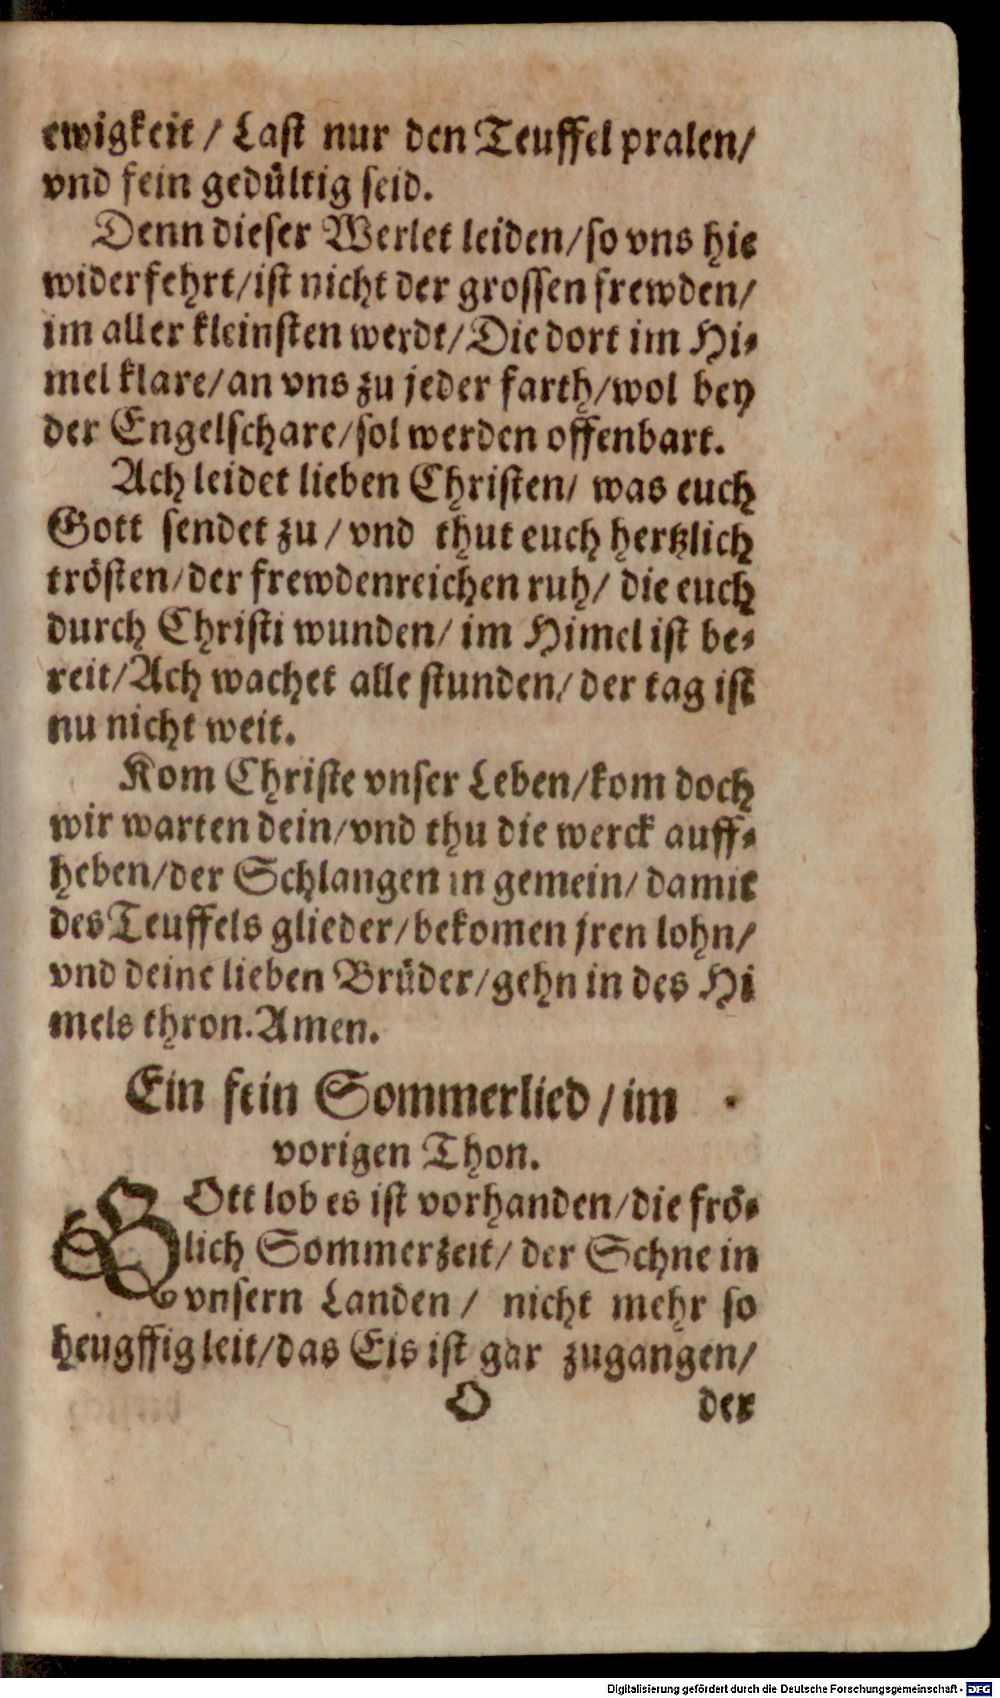 ewigkeit / Last nur den Teuffel pralen/
vnd fein gedültig seid.
Denn dieser Werlet leiden/so vns hie
widerfehrt/ist nicht der grossen frewden/
im aller kleinsten werdt/Die dort im Hi-
mel klare/an vns zu jeder farth/wol bey
der Engelschare/sol werden offenbart.
Ach leidet lieben Christen/ was euch
Gott sendet zu / vnd thut euch hertzlich
trösten/der frewdenreichen ruh/ die euch
durch Christi wunden/ im Himel ist be-
reit/Ach wachet alle stunden/ der tag ist
nu nicht weit.
Kom Christe vnser Leben/kom doch
wir warten dein/vnd thu die werck auff-
heben/der Schlangen in gemein/ damit
des Teuffels glieder/bekomen jren lohn/
vnd deine lieben Brüder/gehn in des Hi
mels thron.Amen.
Ein fein Sommerlied / im
vorigen Thon.
GOtt lob es ist vorhanden/die frö-
lich Sommerzeit/ der Schne in
vnsern Landen / nicht mehr so
heugffig leit/das Eis ist gar zugangen/
O der
Digitalisierung gefördert durch die Deutsche Forschungsgemeinschaft - DFG